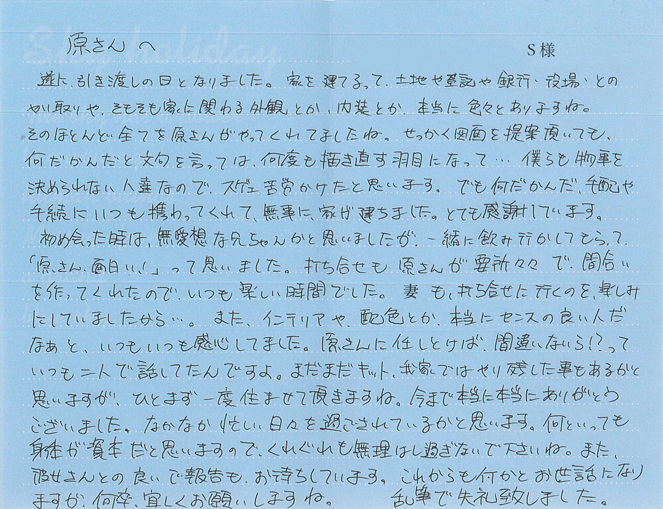 原さんへ
S様
遂に、引き渡しの日となりました。家を建てるって、土地や登記や銀行・役場・との
やり取りや、そもそも家に関わる外観とか、内装とか、本当に色々とありますね。
そのほとんど全てを原さんがやってくれてましたね。せっかく図面を提案頂いても、
何だかんだと文句を言っては、何度も描き直す羽目になって… 僕らも物事を
決められない人達なので、スゲェ苦労かけたと思います。でも何だかんだ、手配や
手続にいつも携わってくれて、無事に、家が建ちました。とても感謝しています。
初め会った時は、無愛想な兄ちゃんかと思いましたが、一緒に飲み行かしてもらって、
「原さん、面白い!」って思いました。打ち合せも原さんが要所々々で、間合い
を作ってくれたので、いつも楽しい時間でした。妻も、打ち合せに行くのを、楽しみ
にしていましたから…。また、インテリアや、配色とか、本当にセンスの良い人だ
なぁと、いつもいつも感心してました。原さんに任しとけば、間違いないら!?って
いつも二人で話してたんですよ。まだまだキット、我家ではやり残した事もあるかと
思いますが、ひとまず一度住ませて頂きますね。今まで本当に本当にありがとう
ございました。なかなか忙しい日々を過ごされているかと思います。何といっても
身体が資本だと思いますので、くれぐれも無理はし過ぎないで下さいね。また、
彼女さんとの良いで報告も、お待ちしています。これからも何かとお世話になり
ますが、何卒、宜しくお願いしますね。 乱筆で失礼致しました。